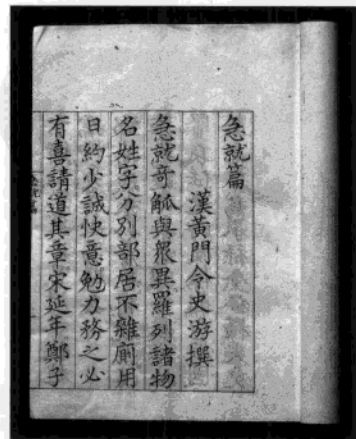 急就篇
漢黃門令史游撰
急就奇觚與眾異羅列諸物
名姓字分別部居不雜廁用
日約少誠快意勉力務之必
有喜請道其章宋延年鄭子